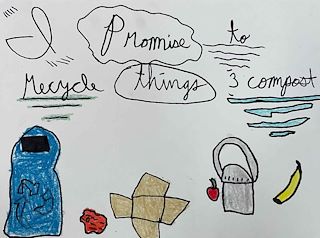 I Promise to
recycle things & compost